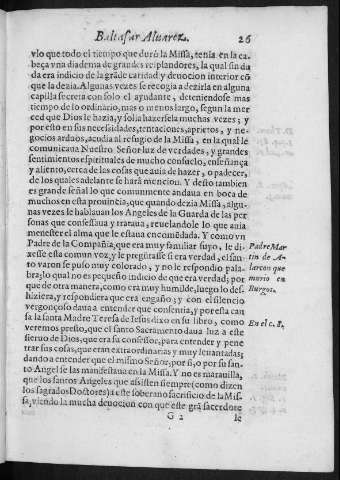 Baltasar Aluarez.
26
vlo que todo el tiempo que duró la Missa, tenia en la ca-
beça vna diadema de grandes resplandores, la qual sin du
da era indicio de la grãde caridad y deuocion interior cõ
que la dezia. Algunas vezes se recogia a dezirla en alguna
capilla secreta con solo el ayudante, deteniendose mas
tiempo de lo ordinario, mas o menos largo, segun la mer
ced que Dios le hazia, y solia hazersela muchas vezes; y
por esto en sus necessidades, tentaciones, aprietos, y ne-
gocios arduos, acudia al refugio de la Missa, en la qual le
comunicaua Nuestro Señor luz de verdades, y grandes
sentimientos espirituales de mucho consuelo, enseñança
y aliento, cerca de las cosas que auia de hazer, o padecer,
de los quales adelante se hará mencion. Y desto tambien
es grande señal lo que comunmente andaua en boca de
muchos en esta prouincia, que quando dezia Missa, algu-
nas vezes le hablauan los Angeles de la Guarda de las per
sonas que confessaua y trataua, reuelandole lo que auia
menester el alma que le estaua encomẽdada. Y como vn
Padre de la Compañia, que era muy familiar suyo, le di-
xesse esta comun voz, y le pregũtasse si era verdad, el san-
to varon se puso muy colorado, y no le respondio pala-
bra; lo qual no es pequeño indicio de que era verdad; por
que de otra manera, como era muy humilde, luego lo des-
hiziera, y respondiera que era engaño; y con el silencio
vergonçoso daua a entender que consentia, y por esta cau
sa la santa Madre Teresa de Iesus dixo en su libro, como
veremos presto, que el santo Sacramento daua luz a este
sieruo de Dios, que era su confessor, para entender y pene
trar sus cosas, que eran extraordinarias y muy leuantadas;
dando a entender que el mismo Señor, por si, o por su san-
to Angel se las manifestaua en la Missa. Y no es marauilla,
que los santos Angeles que assisten siempre (como dizen
los sagrados Doctores) a este soberano sacrificio de la Mis-
sa, viendo la mucha deuocion con que este grã sacerdote
G 2
le
Padre Mar
tin de A-
larcon que
murio en
Burgos.
En el c. 8,